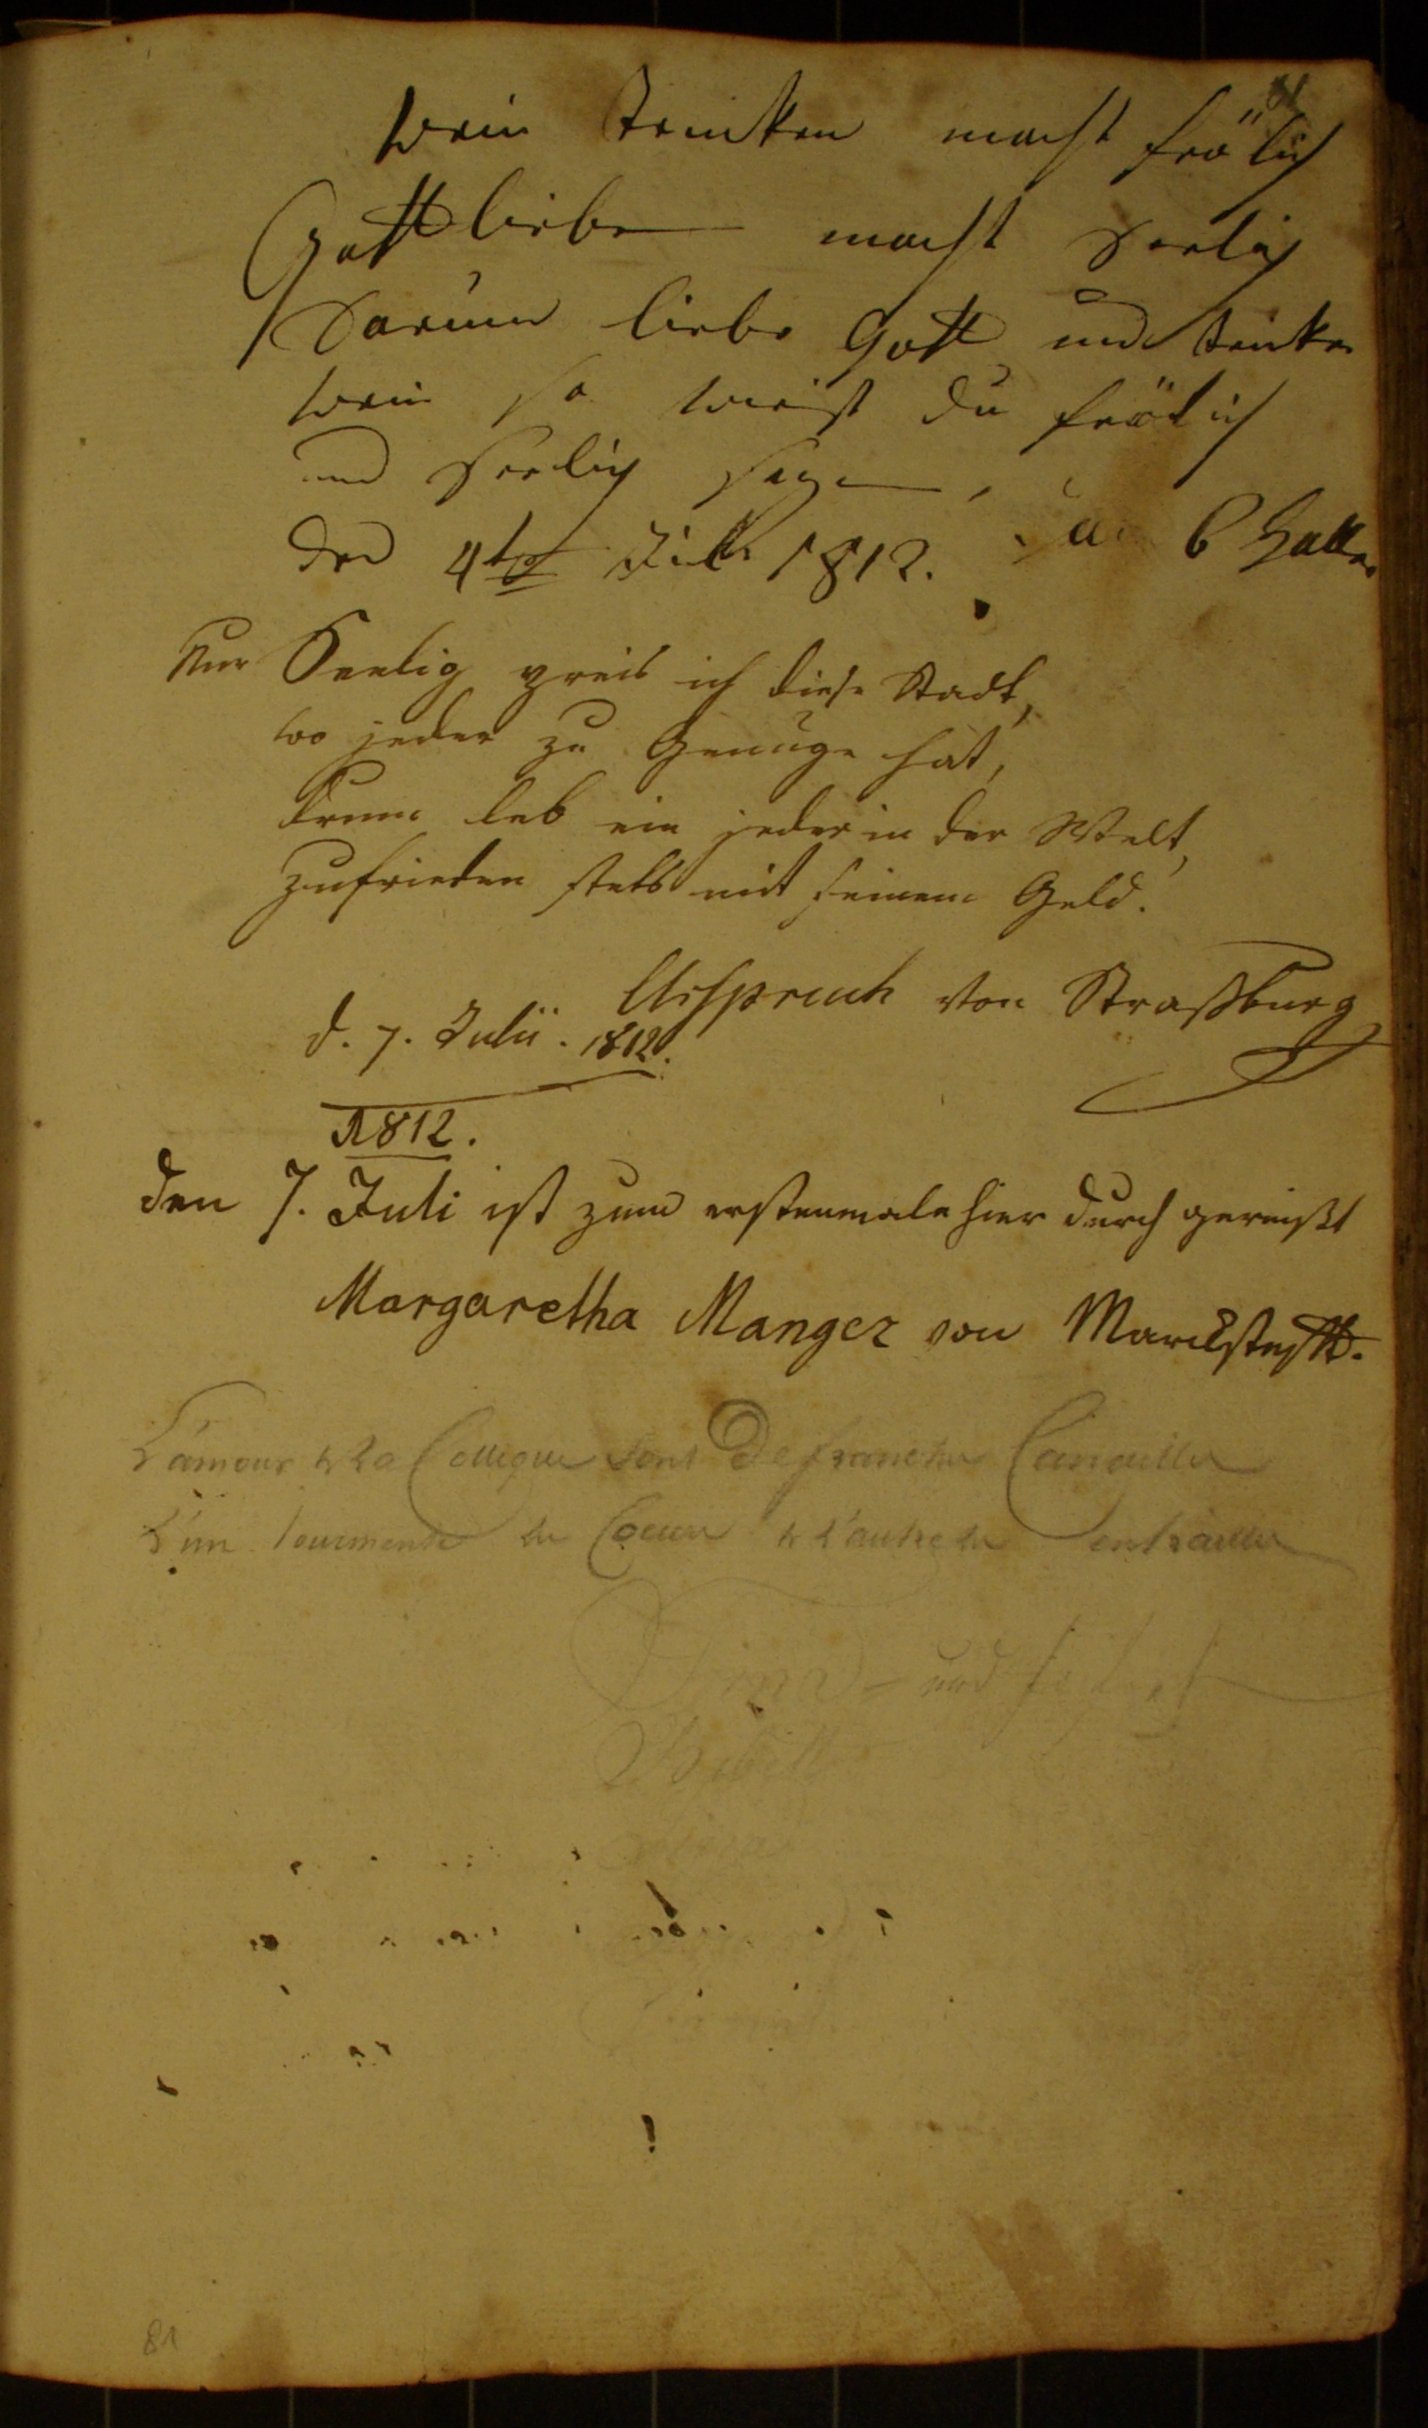 wein trinken macht frölich
Gott liebe macht seelig
darum liebe Gott und trinke
wein so wirst du frölich
und seelig seyn,
den 4ten Juli 1812. Haller
Nur Seelig preis ich diese Stadt,
wo jeder zu Genüge hat,
drum leb ein jeder in der Welt,
zufrieden stets mit seinem Geld.
Urspruch von Straßburg
d. 7. Julii. 1812.
1812.
den 7. Juli ist zum erstenmale hier durch gereißt
Margaretha Manger von Marcksteft.
L'amour & la Colique sont De franche Canailles
L'un tourmente le Coeur & l'autre les entrailles
und
81